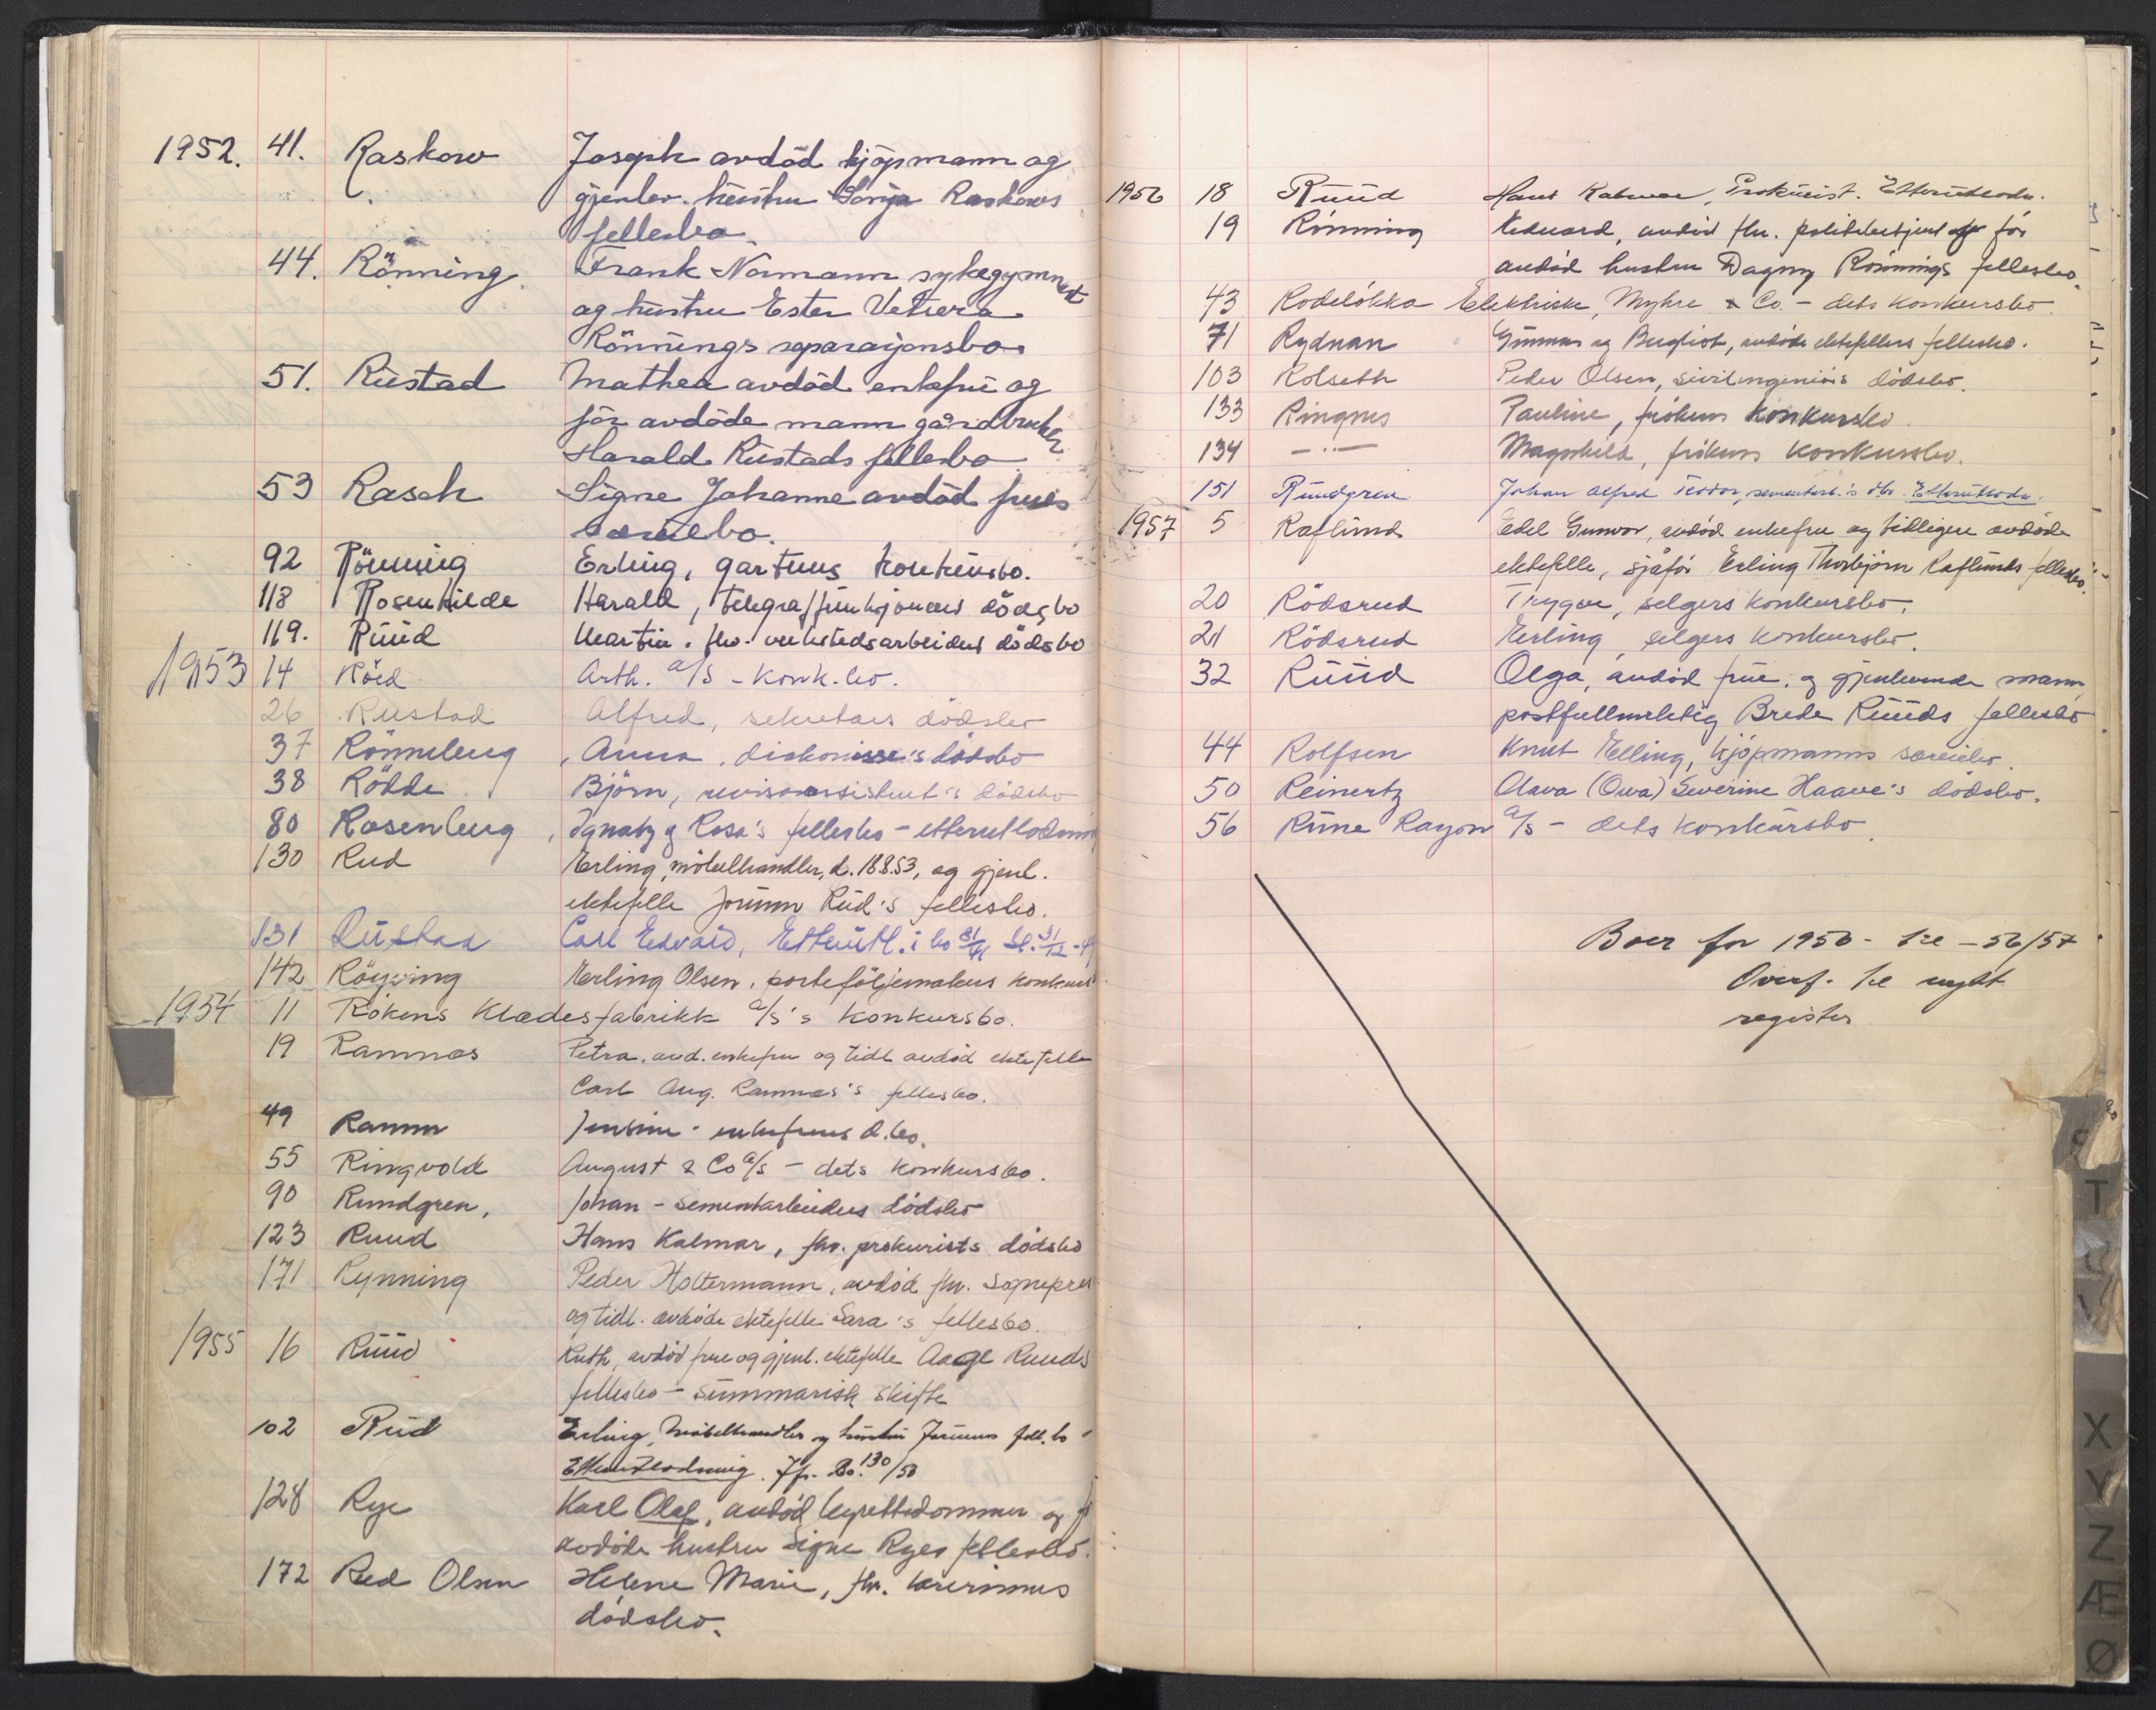 1952. 41. Raskow Joseph avdöd kjöpmann og
gjenlev. hustru Sonja Raskows
fellesbo.
44. Rönning Frank Normann sykegymnast
og hustru Ester Vetiera
Rönnings separasjonsbo.
51. Rustad Mathea avdöd enkefru og
för avdöde mann gårdbruker
Harald Rustads fellesbo
53 Rasch Signe Johanne avdöd frues
særeiebo.
92 Rönning Erling, gartners konkursbo.
118 Rosenkilde Harald, telegraffunksjonærs dödsbo
119. Ruud Martin. fhv. verkstedsarbeiders dödsbo
1953 14 Röed Arth. A/S - konk.bo.
26 Rustad Alfred, sekretærs dödsbo
37 Rönneberg, Anna, diakonisse's dödsbo
38 Rödde Björn, revisorassistent's dödsbo
80 Rosenberg, Ignatz og Rosa's fellesbo - etterutlodning
130 Rud Erling, möbelhandler, d. 18.8.53, og gjenl.
ektefelle Jorunn Rud's fellesbo.
131 Rustad Carl Edvard, Etterutl. i bo
142 Röyving Erling Olsen, porteföljemakers konkurs
1954 11 Rökens Klædesfabrikk A/S's konkursbo.
19 Ramnæs Petra, avd. enkefru og tidl. avdöd ektefelle
Carl Aug. Ramnæs's fellesbo.
49 Ramm Jensine - enkefrues d.bo.
55 Ringvold August & Co A/S - dets konkursbo.
90 Rundgren, Johan - sementarbeiders dödsbo
123 Ruud Hans Kalmar, fhv. prokurists dödsbo
171 Rynning Peder Holtermann, avdöd fhv. sogneprest
og tidl. avdöde ektefelle Sara's fellesbo.
1955 16 Ruud Ruth, avdöd frue og gjenl. ektefelle Aage Ruuds
fellesbo - summarisk skifte
102 Rud Erling, möbelhandler og hustru Jorunns fell.bo
Etterutlodning. Jfr. Bo. 130/53
128 Rye Karl Olaf, avdöd byrettsdommer og
avdöde hustru Signe Ryes fellesbo.
172 Red Olsen Helene Marie, fhv. lærerinnes
dödsbo.
1956 18 Ruud Hans Kalmar, Prokurist. Etterutlodn.
19 Rönning Edvard, avdöd fhv. politibetjent og för
avdöd hustru Dagny Rönnings fellesbo.
43 Rodelökka Elektriske, Myhre & Co. - dets konkursbo.
71 Rydman Gunnar og Bergliot, avdöde ektefellers fellesbo.
103 Rolseth Peder Olsen, sivilingeniörs dödsbo.
133 Ringnes Pauline, frökens konkursbo.
134 - " - Magnhild, frökens konkursbo.
151 Rundgren Johan Alfred Teodor, sementarb.'s dbo. Etterutlodn.
1957 5 Raflund Edel Gunvor, avdöd enkefru og tidligere avdöde
ektefelle, sjåför Erling Thorbjörn Raflunds fellesbo.
20 Rödsrud Trygve, selgers konkursbo.
21 Rödsrud Erling, selgers konkursbo.
32 Ruud Olga, avdöd frue, og gjenlevende mann,
postfullmektig Brede Ruuds fellesbo
44 Rolfsen Knut Elling, kjöpmanns særeiebo.
50 Reinertz Olava (Ova) Severine Haave's dödsbo.
56 Rune Rayon A/S - dets konkursbo.
Boer for 1956 - til - 56/57
Overf. til nytt
register
S
T
U
V
X
Y
Z
Æ
Ø